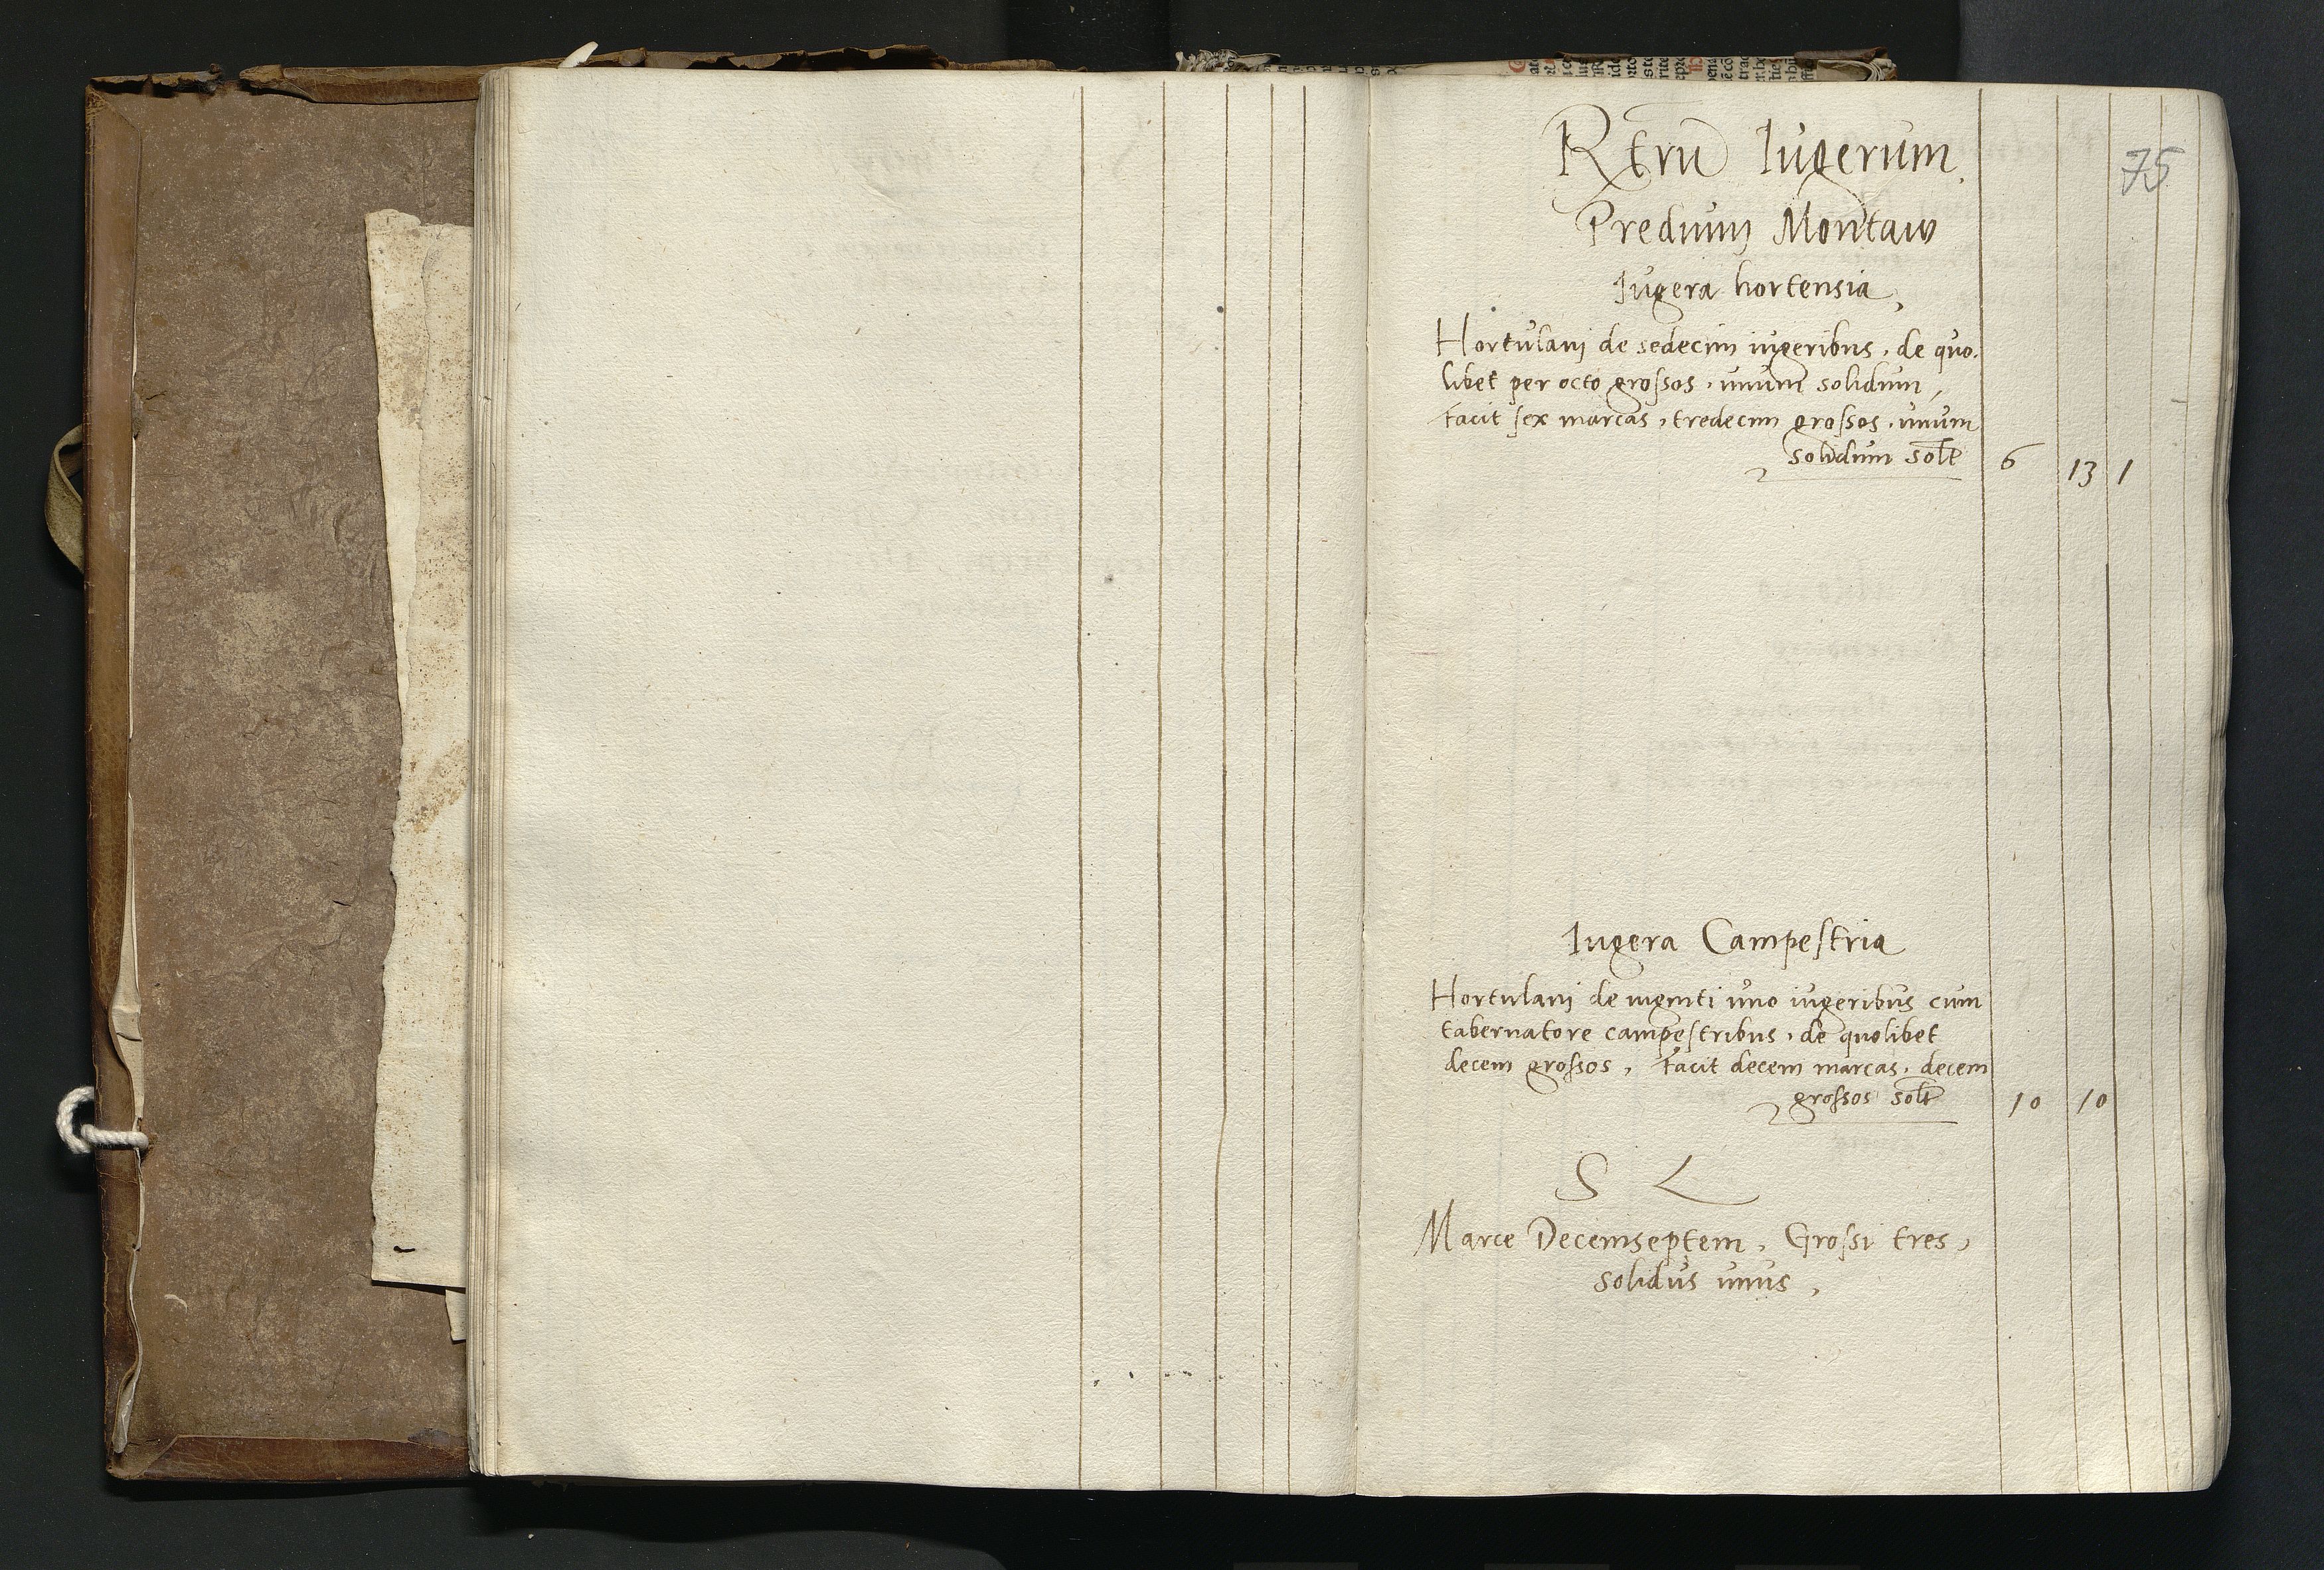 Rerū Iugerum
75
Predium Montaw
Iugera hortensia,
Hortulanj de sedecim iugeribus, de quo.
libet per octo grossos, unum solidum,
facit sex marcas, tredecim grossos, unum
solidum solt 6 13 1
Iugera Campestria
Hortulanj de viginti uno iugeribus cum
tabernatore campestribus, de quolibet
decem grossos, facit decem marcas, decem
grossos solt 10 10
S L
Marce Decemseptem, Grossi tres,
solidus unus,